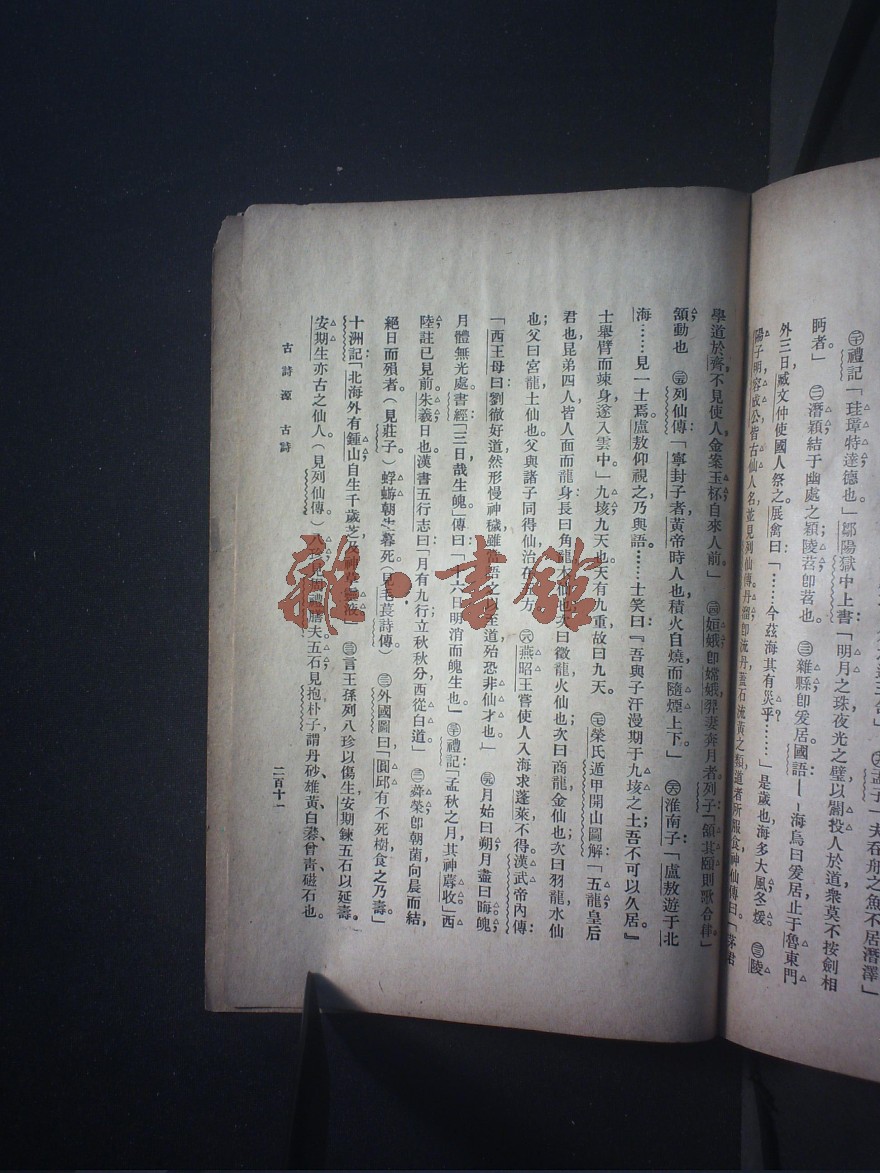 孟子「夫吞舟之魚不居潛澤」
㊁禮記「珪璋特達德也」鄒陽獄中上書「明月之珠夜光之璧以闇投人於道衆莫不按劍相
眄者。」㊂潛穎結于幽處之穎陵苕卽苕也。㊂雜縣卽爰居國語——海鳥曰爰居止于魯東門
外三日臧文仲使國人祭之展禽曰「……今茲海其有災乎……」是歲也海多大風冬煖。陵
陽子明容成公皆古仙人名並見列仙傳。丹溜卽流丹蓋石流黃之類道者所服食神仙傳曰「茅君
學道於齊不見使人金案玉杯自來人前。」姮娥卽嫦娥羿妻奔月者列子「頷其頤則歌合律」
頷動也 列仙傳「寧封子者黃帝時人也積火自燒而隨煙上下」淮南子「盧敖遊于北
海……見一士焉盧敖仰視之乃與語。……士笑曰『吾與子汗漫期于九垓之上吾不可以久居』
士舉臂而竦身遂入雲中」九垓九天也天有九重故曰九天。榮氏遁甲開山圖解「五龍皇后
君也昆弟四人皆人面而龍身長曰角龍木仙也次曰徵龍火仙也次曰商龍金仙也次曰羽龍水仙
也父曰宮龍土仙也父與諸子同得仙治在五方 燕昭王嘗使人入海求蓬萊不得。漢武帝內傳
「西王母曰劉徹好道然形慢神穢雖當語之以至道殆恐非仙才也。」月始曰朔月盡曰晦魄
月體無光處。書經「三日哉生魄」傳曰「十六日明消而魄生也。」禮記「孟秋之月其神蓐收」西
陸註已見前朱羲日也漢書五行志曰「月有九行立秋秋分西從白道」蕣榮卽朝菌向晨而結,
絕日而殞者。(見莊子)蜉蝣朝生暮死。(見毛萇詩傳)外國圖曰「圓邱有不死樹食之乃壽」
十洲記「北海外有鍾山自生千歲芝及神草靈液」言王孫列八珍以傷生安期鍊五石以延壽。
安期生亦古之仙人(見列仙傳)八珍見周禮膳夫五石見抱朴子謂丹砂雄黃白礬曾青磁石也。
古詩源 古詩
二百十一
雜·書館